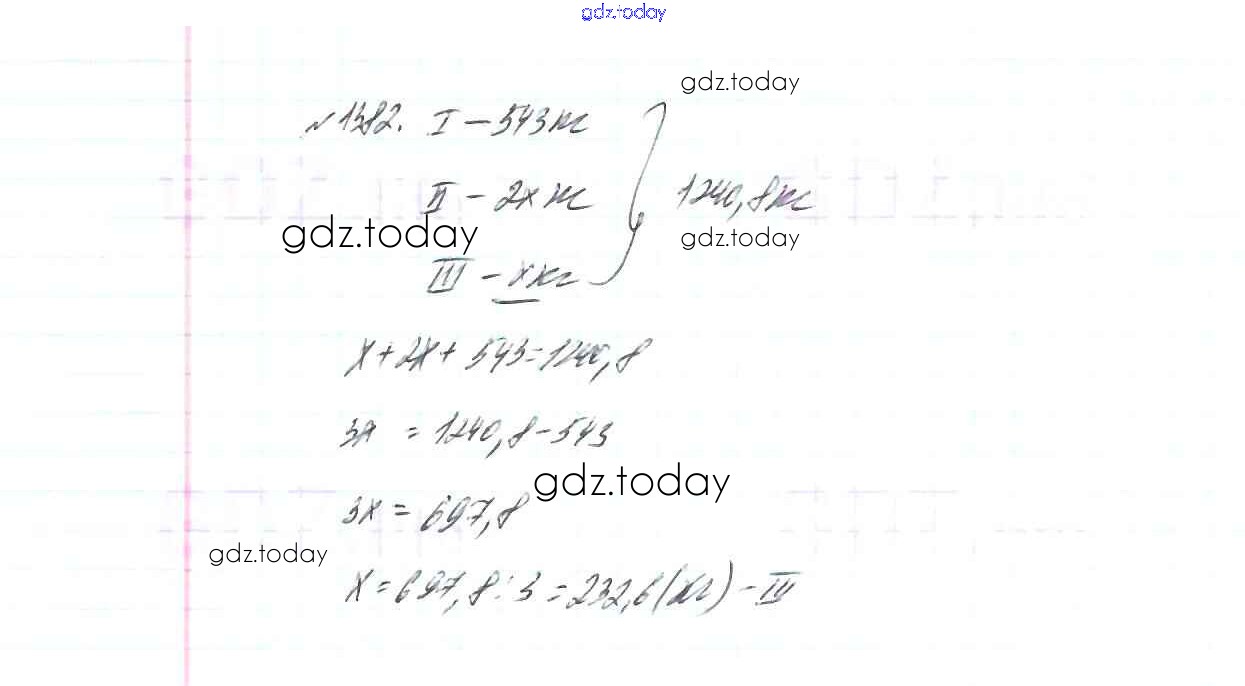 gdz.today
gdz.today
№1382. I – 543 кг
II – 2x кг
1240,8 кг
gdz.today
gdz.today
III – x кг
x + 2x + 543 = 1240,8
3x = 1240,8 – 543
gdz.today
3x = 697,8
gdz.today
x = 697,8 : 3 = 232,6 (кг) – III